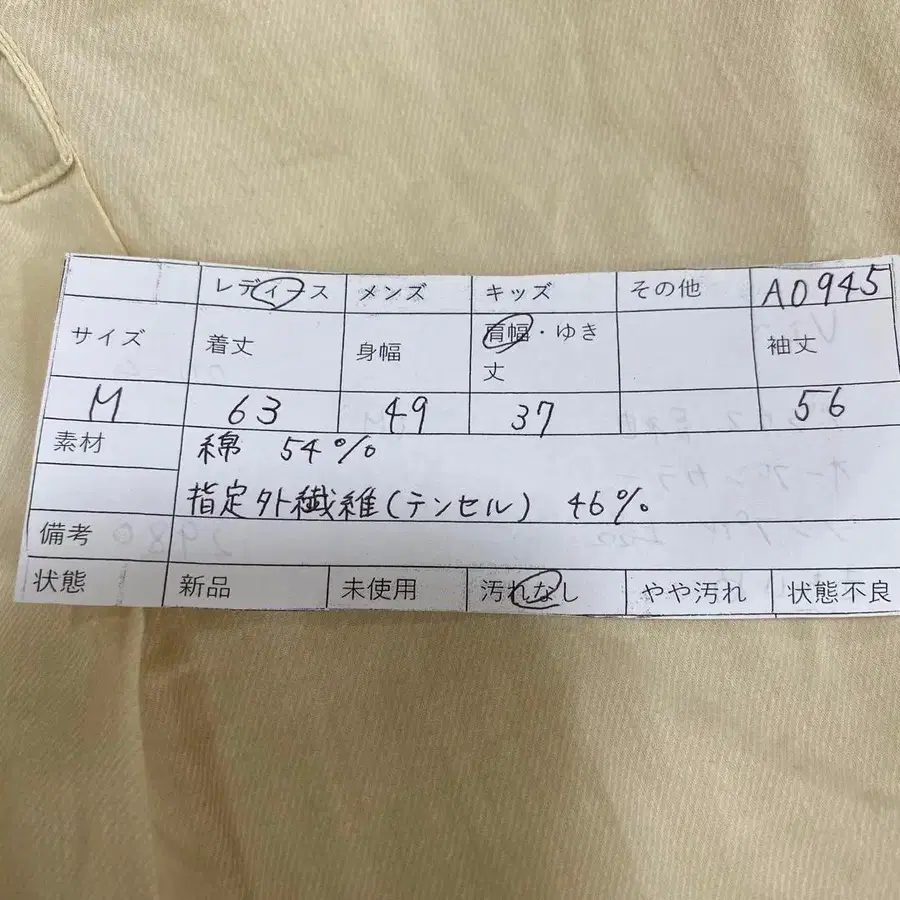 レディース メンズ キッズ その他 A0945
サイズ 着丈 身幅 肩幅・ゆき丈 袖丈
M 63 49 37 56
素材 綿 54%
指定外繊維(テンセル) 46%
備考
状態 新品 未使用 汚れなし やや汚れ 状態不良